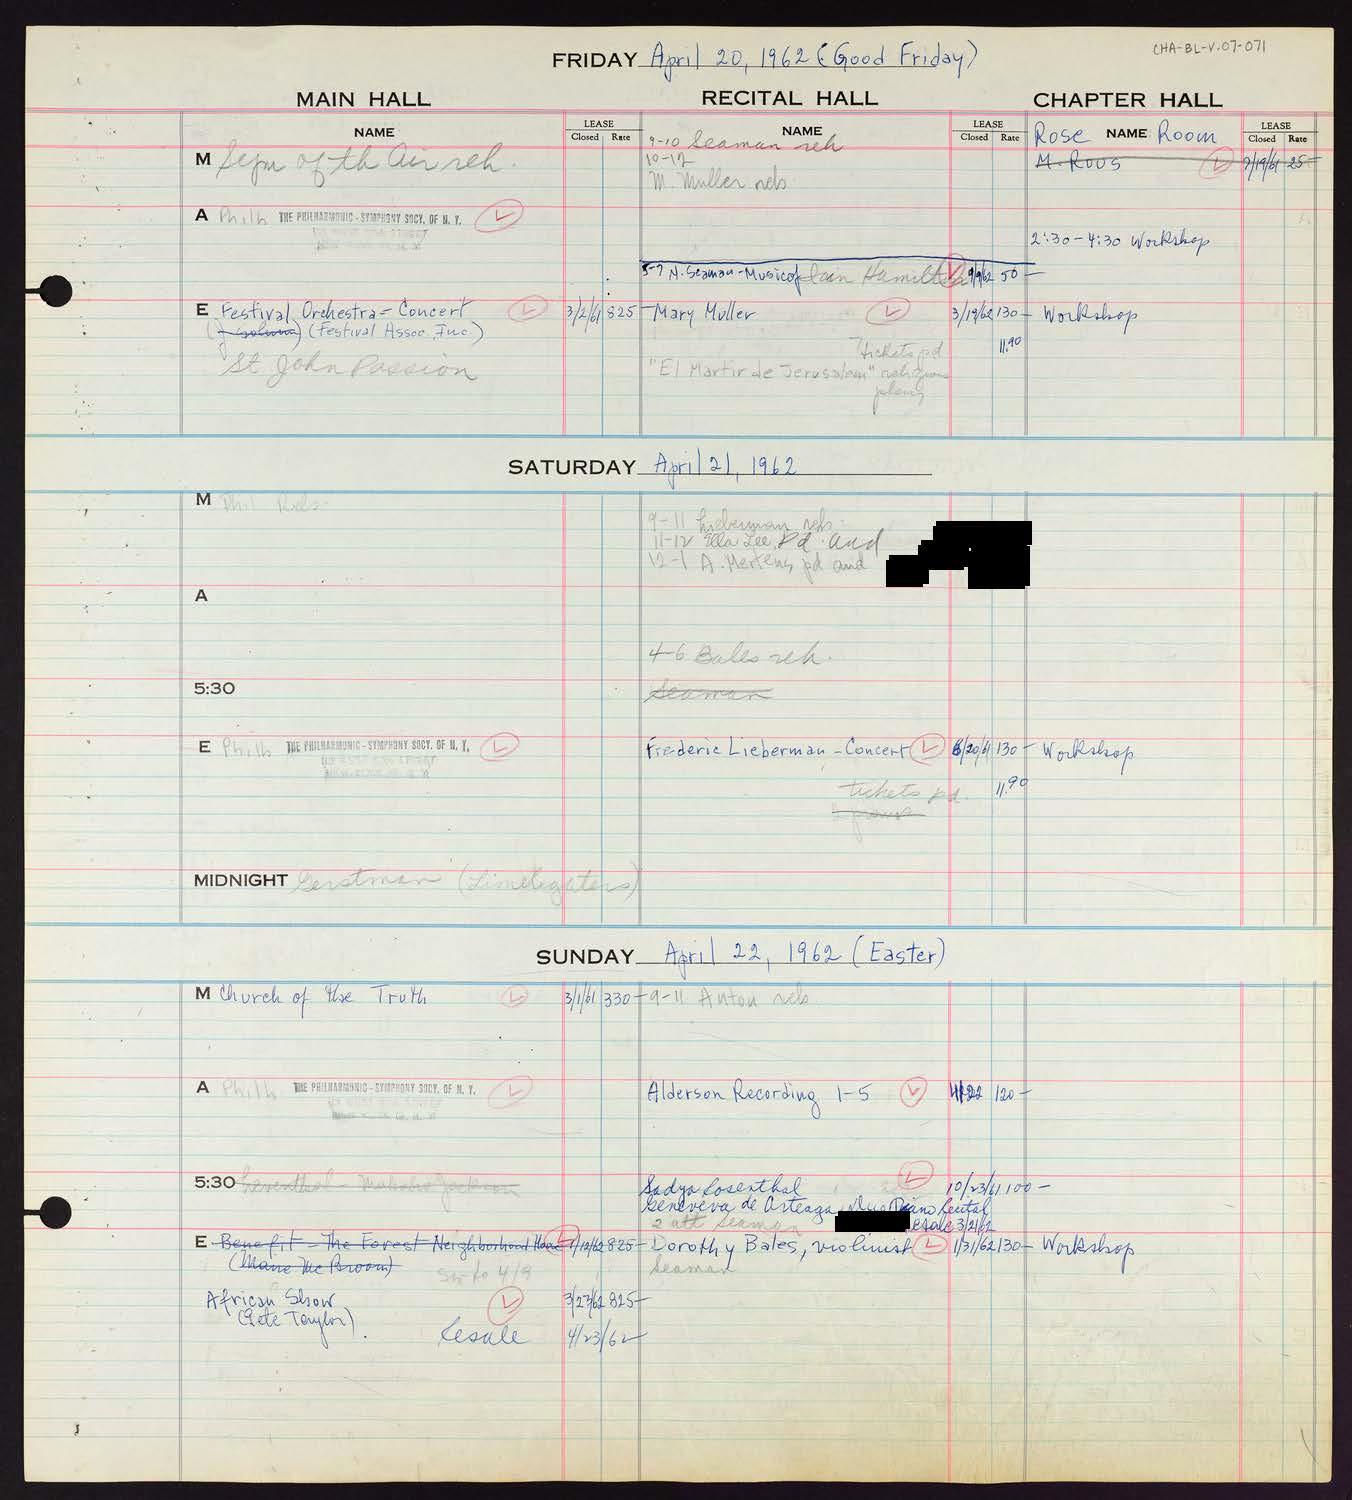 CHA-BL-V.07-071
FRIDAY April 20, 1962 (Good Friday)
MAIN HALL RECITAL HALL CHAPTER HALL
NAME LEASE Closed Rate NAME LEASE Closed Rate Rose NAME Room LEASE Closed Rate
M Sym of th Air reh. 9-10 Seaman reh M. Roos 25-
10-12
M. Muller reh
A Philh THE PHILHARMONIC-SYMPHONY SOCY. OF N. Y.
2:30-4:30 Workshop
5-7 N. Seaman-Music of Iain Hamilton 9/9/62 50-
E Festival Orchestra-Concert 3/2/61 825- Mary Muller 3/19/62 130- Workshop
(Festival Assoc. Inc.)
St John Passion tickets pd 11.90
"El Martir de Jerusalem"
SATURDAY April 21, 1962
M Phil Reh
9-11 Lieberman reh
11-12 Ella Lee, Pd. and
12-1 A. Mertens pd and
A
4-6 Bales reh.
5:30 Seaman
E Philh THE PHILHARMONIC-SYMPHONY SOCY. OF N. Y. Frederic Lieberman-Concert 6/20/61 130- Workshop
tickets pd. 11.90
MIDNIGHT Gerstman (Limelighters)
SUNDAY April 22, 1962 (Easter)
M Church of the Truth 3/1/61 330- 9-11 Anton reh
A Philh THE PHILHARMONIC-SYMPHONY SOCY. OF N. Y. Alderson Recording 1-5 4/22 120-
5:30 Leventhal - Mahalia Jackson Sadya Rosenthal 10/23/61 100-
Geneveva de Arteaga, Piano Recital
2 att Seaman resale 3/21/62
E Benefit - The Forest Neighborhood House 1/12/62 825- Dorothy Bales, violinist 1/31/62 130- Workshop
(Mane McBroom) Seaman
African Show 3/27/62 825-
(Pete Taylor)
Resale 4/23/62